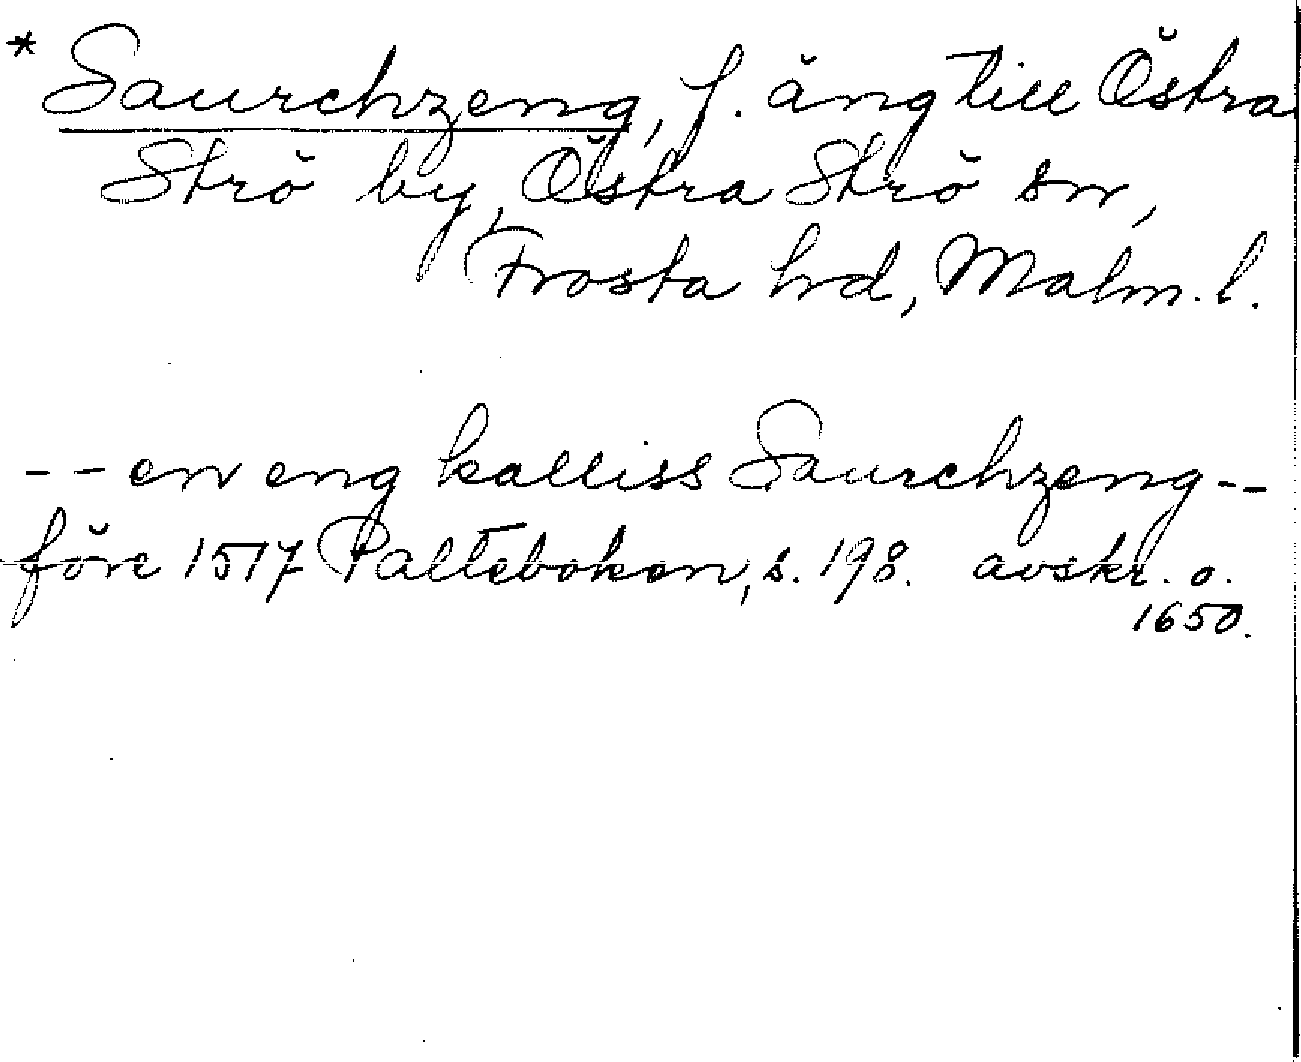 * Saurchzeng, f. äng till Östra
Strö by, Östra Strö sn,
Frosta hd, Malm. l.
-- en eng kalliss Saurchzeng --
före 1517 Palteboken, s. 198. avskr. o.
1650.